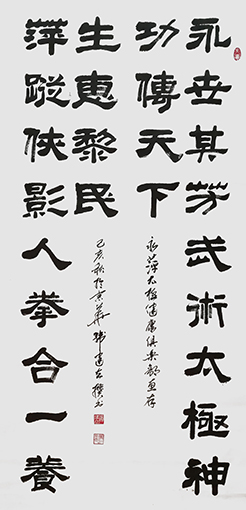 永世其芳武術太極神
功傳天下
永萍太極健康俱樂部惠存
萍蹤俠影人拳合一養
生惠黎民
己亥秋於京華
撰書